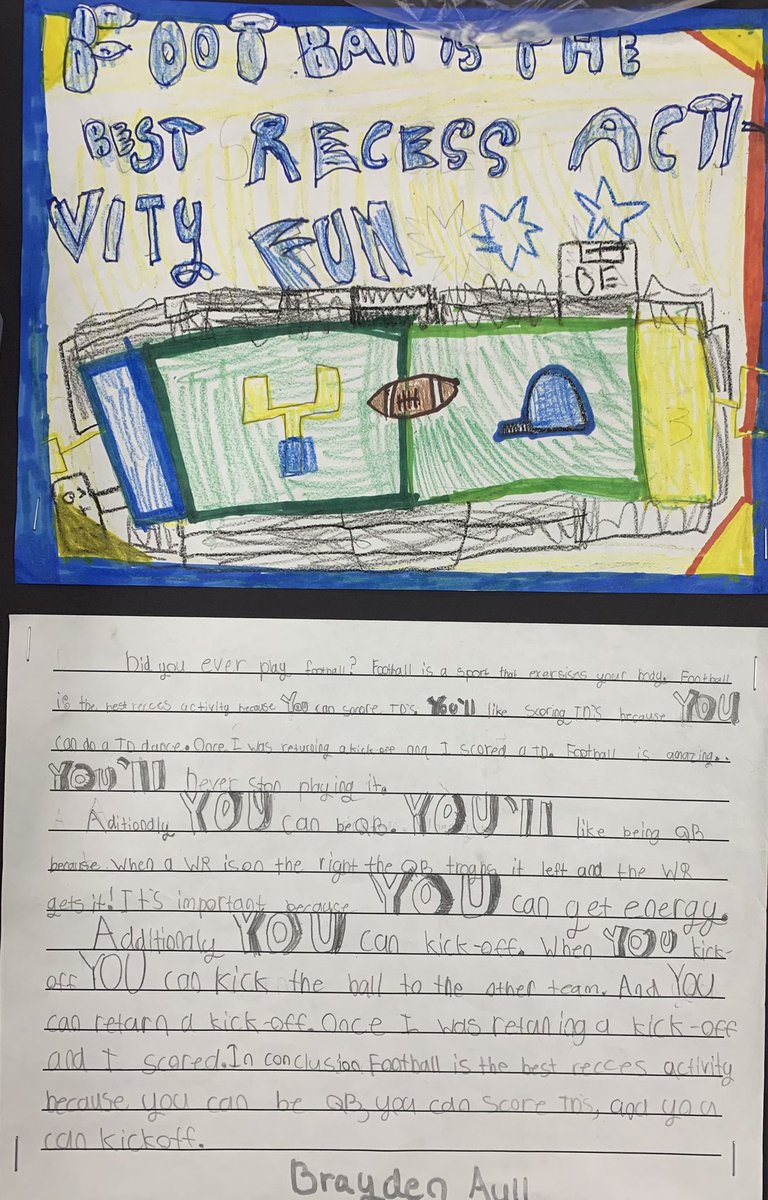 FOOTBALL IS THE
BEST RECESS ACTI-
VITY FUN
DE
3
Did you ever play football? Football is a sport that exersisis your body. Football
is the best recces activity because You can scrore TD's. You'll like scoring TD's because YOU
can do a TD dance. Once I was returning a kick off and I scored a TD. Football is amazing..
YOU'll never stop playing it.
Aditionally YOU can be QB. YOU'll like being QB
because. When a WR is on the right the QB trhows it left and the WR
gets it! It's important because YOU can get energy.
Additionaly YOU can kick-off. When YOU kick-
off YOU can kick the ball to the other team. And YOU
can return a kick-off. Once I was retaning a kick-off
and I scored. In conclusion Football is the best recces activity
because you can be QB, you can score TD's, and you
can kickoff.
Brayden Aull